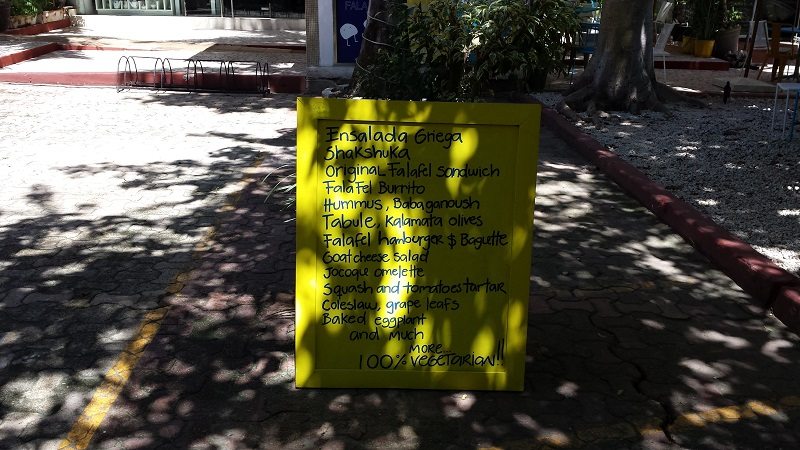 FALA
Ensalada Griega
Shakshuka
Original Falafel Sandwich
Falafel Burrito
Hummus, Babaganoush
Tabule, Kalamata olives
Falafel hamburger $ Baguette
Goat cheese Salad
Jocoque omelette
Squash and tomatoes tartar
Coleslaw, grape leafs
Baked eggplant
and much
more...
100% VEGETARIAN!!